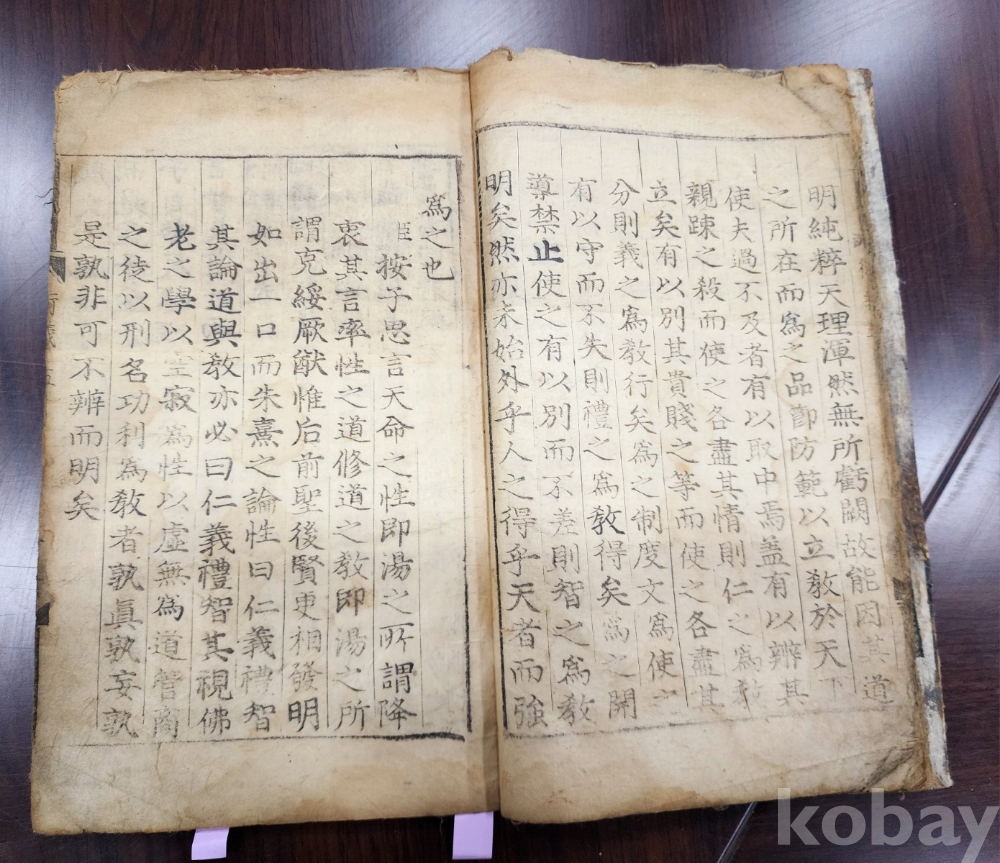 明純粹天理渾然無所虧闕故能因其道
之所在而爲之品節防範以立敎於天下
使夫過不及者有以取中焉盖有以辨其
親踈之殺而使之各盡其情則仁之爲敎
立矣有以別其貴賤之等而使之各盡其
分則義之爲敎行矣爲之制度文爲使之
有以守而不失則禮之爲敎得矣爲之開
導禁止使之有以別而不差則智之爲敎
明矣然亦未始外乎人之得乎天者而強
爲之也
臣按子思言天命之性即湯之所謂降
衷其言率性之道修道之敎即湯之所
謂克綏厥猷惟后前聖後賢更相發明
如出一口而朱熹之論性曰仁義禮智
其論道與敎亦必曰仁義禮智其視佛
老之學以空寂爲性以虛無爲道管商
之徒以刑名功利爲敎者孰眞孰妄孰
是孰非可不辨而明矣
kobay